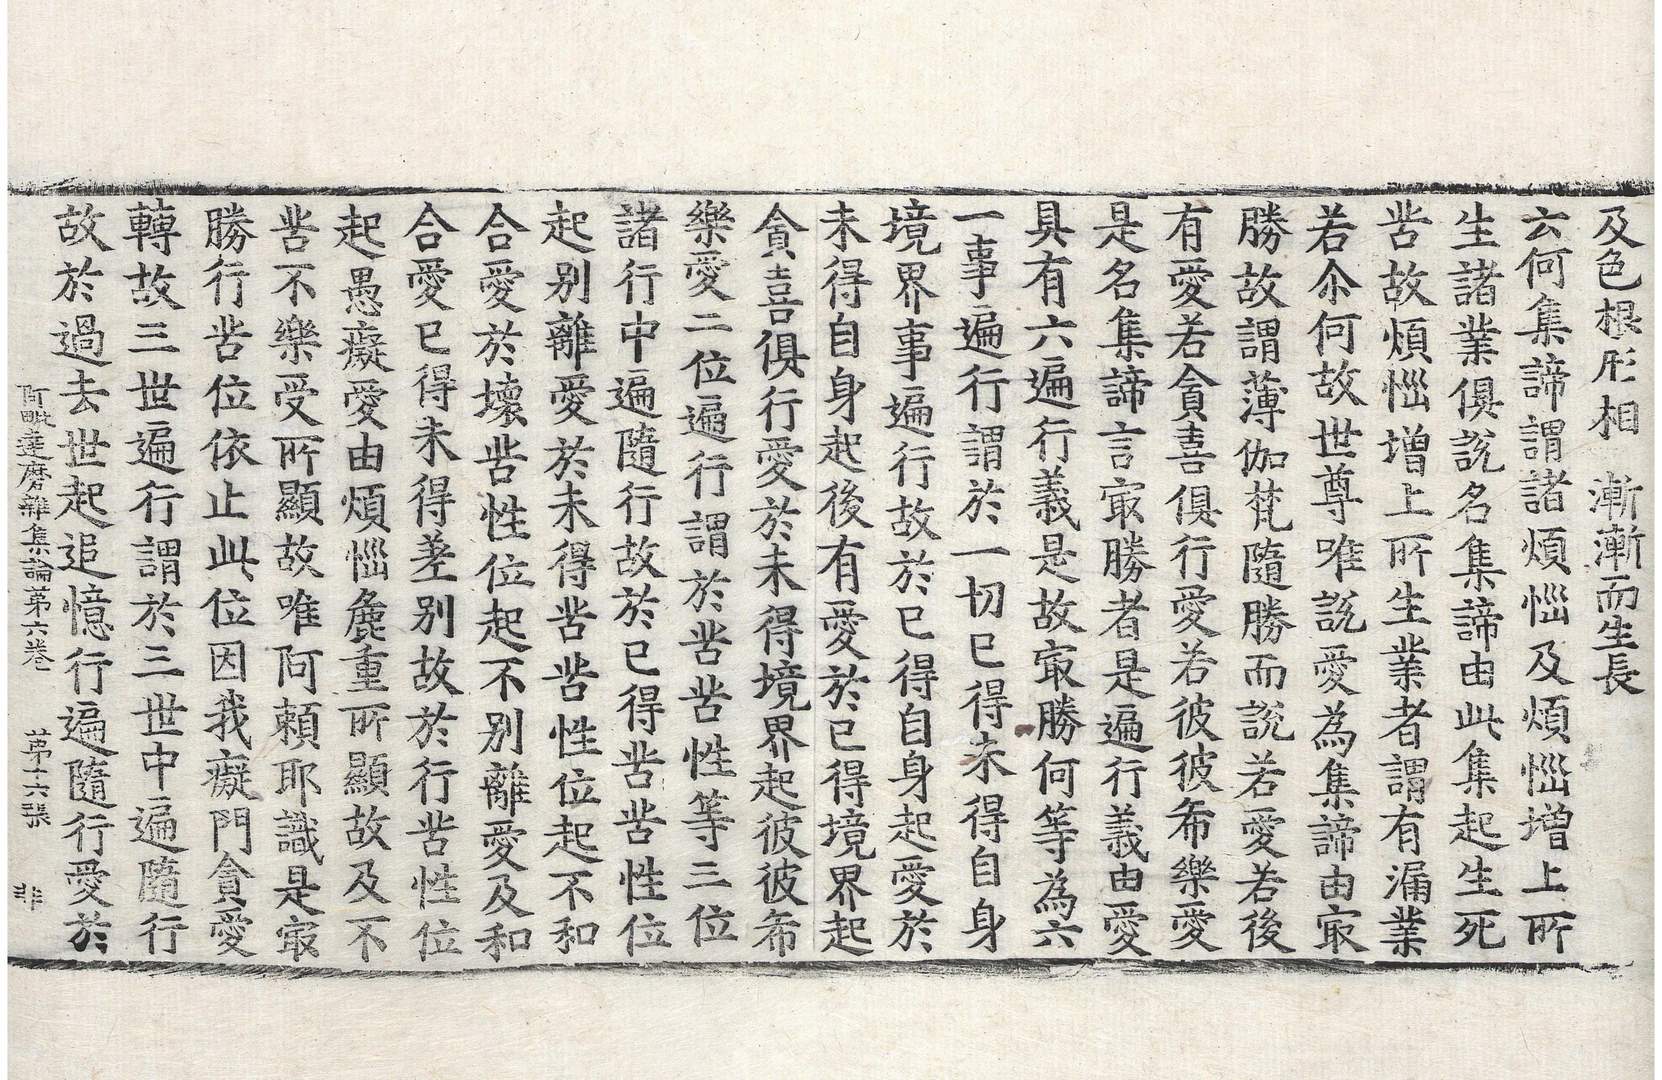 及色根形相　漸漸而生長
云何集諦謂諸煩惱及煩惱增上所
生諸業俱說名集諦由此集起生死
苦故煩惱增上所生業者謂有漏業
若尒何故世尊唯說愛為集諦由㝡
勝故謂薄伽梵隨勝而說若愛若後
有愛若貪喜俱行愛若彼彼希樂愛
是名集諦言㝡勝者是遍行義由愛
具有六遍行義是故㝡勝何等為六
一事遍行謂於一切已得未得自身
境界事遍行故於已得自身起愛於
未得自身起後有愛於已得境界起
貪喜俱行愛於未得境界起彼彼希
樂愛二位遍行謂於苦苦性等三位
諸行中遍隨行故於已得苦苦性位
起別離愛於未得苦苦性位起不和
合愛於壞苦性位起不別離愛及和
合愛已得未得差別故於行苦性位
起愚癡愛由煩惱麁重所顯故及不
苦不樂受所顯故唯阿賴耶識是㝡
勝行苦位依止此位因我癡門貪愛
轉故三世遍行謂於三世中遍隨行
故於過去世起追憶行遍隨行愛於
阿毗達磨雜集論苐六卷　苐十六張　非